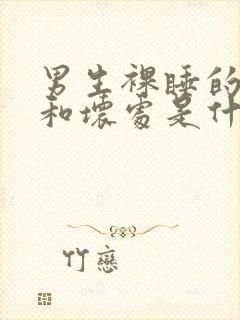 男生裸睡的
和壞處是什
竹戀